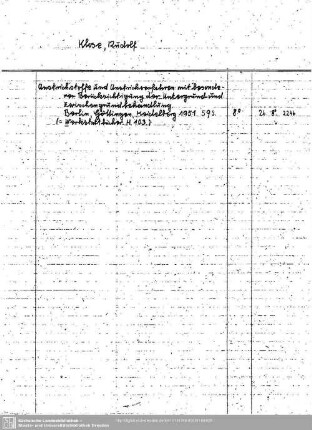 Klose, Rudolf
Anstrichstoffe und Anstrichverfahren mit besonde-
rer Berücksichtigung der Untergrund und
Zwischengrundbehandlung.
Berlin, Göttingen, Heidelberg 1951. 59 S. 8° 26. 8°. 2244
(= Werkstattbücher. H. 103.)
Sächsische Landesbibliothek –
Staats- und Universitätsbibliothek Dresden